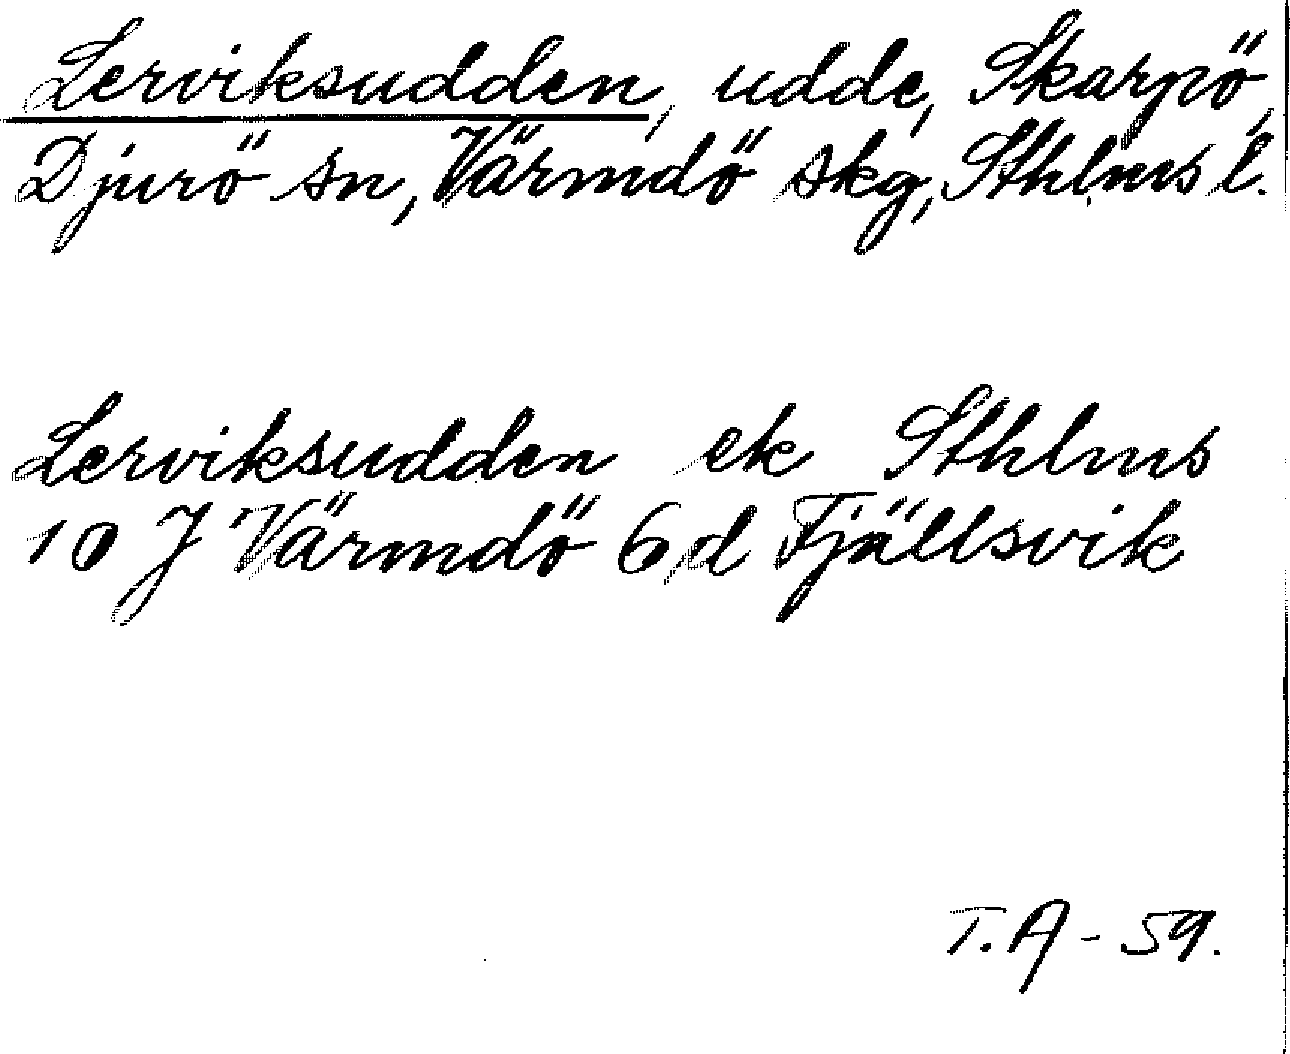 Lerviksudden, udde, Skarpö,
Djurö sn, Värmdö skg, Sthlms l.
Lerviksudden ek Sthlms
10 J Värmdö 6 d Fjällsvik
T.A - 59.